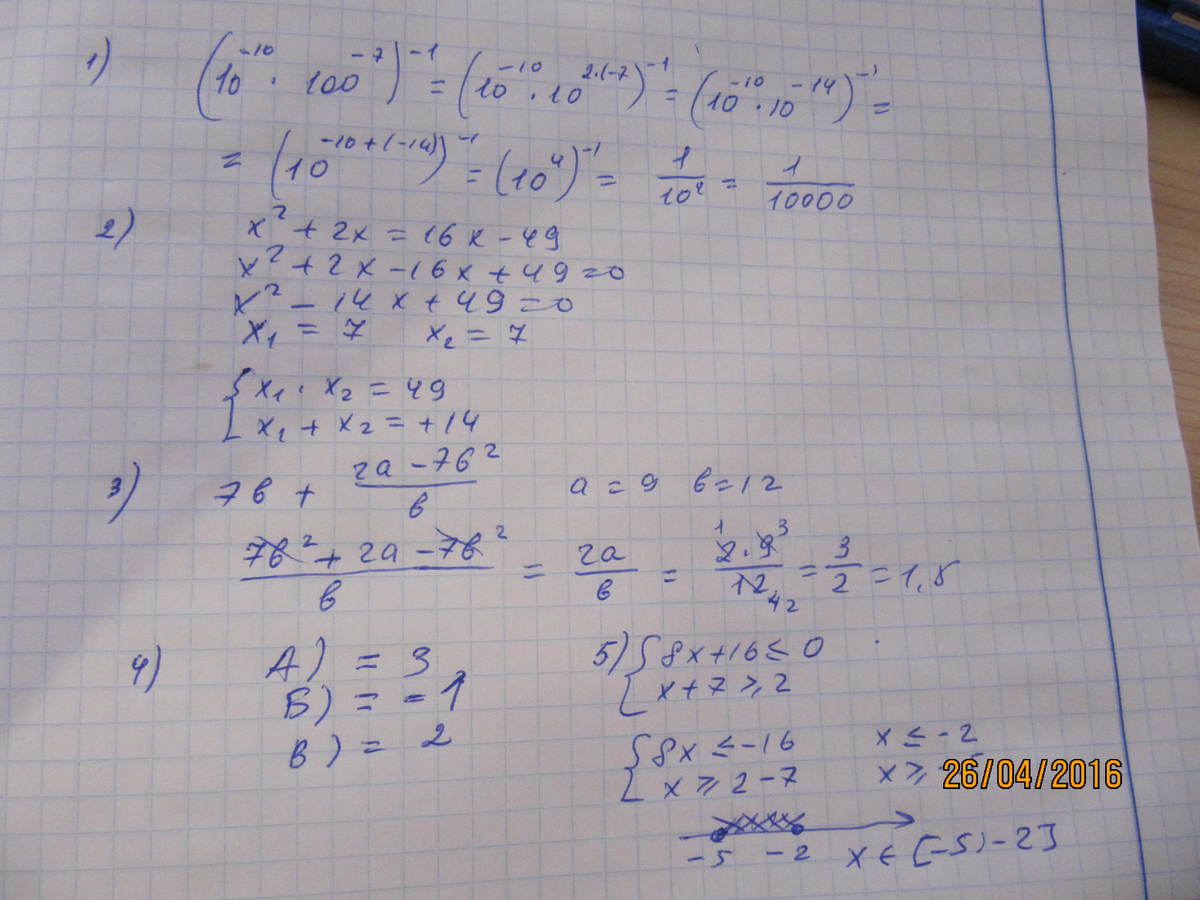 1) (10^-10 · 100^-7)^-1 = (10^-10 · 10^2·(-7))^-1 = (10^-10 · 10^-14)^-1 =
= (10^-10+(-14))^-1 = (10^4)^-1 = 1/10^2 = 1/10000
2) x² + 2x = 16x - 49
x² + 2x - 16x + 49 = 0
x² - 14x + 49 = 0
x₁ = 7 x₂ = 7
{ x₁ · x₂ = 49
x₁ + x₂ = +14
3) 7в + (2a - 7в²)/в a = 9 в = 12
(7в² + 2a - 7в²)/в = 2a/в = (2 · 9)/12 = 3/2 = 1,5
1 3
4 2
4) А) = 3
Б) = -1
В) = 2
5) { 8x + 16 ≤ 0
x + 7 ≥ 2
{ 8x ≤ -16 x ≤ -2
x ≥ 2 - 7 x ≥
26/04/2016
-5 -2 x ∈ [-5) -2]